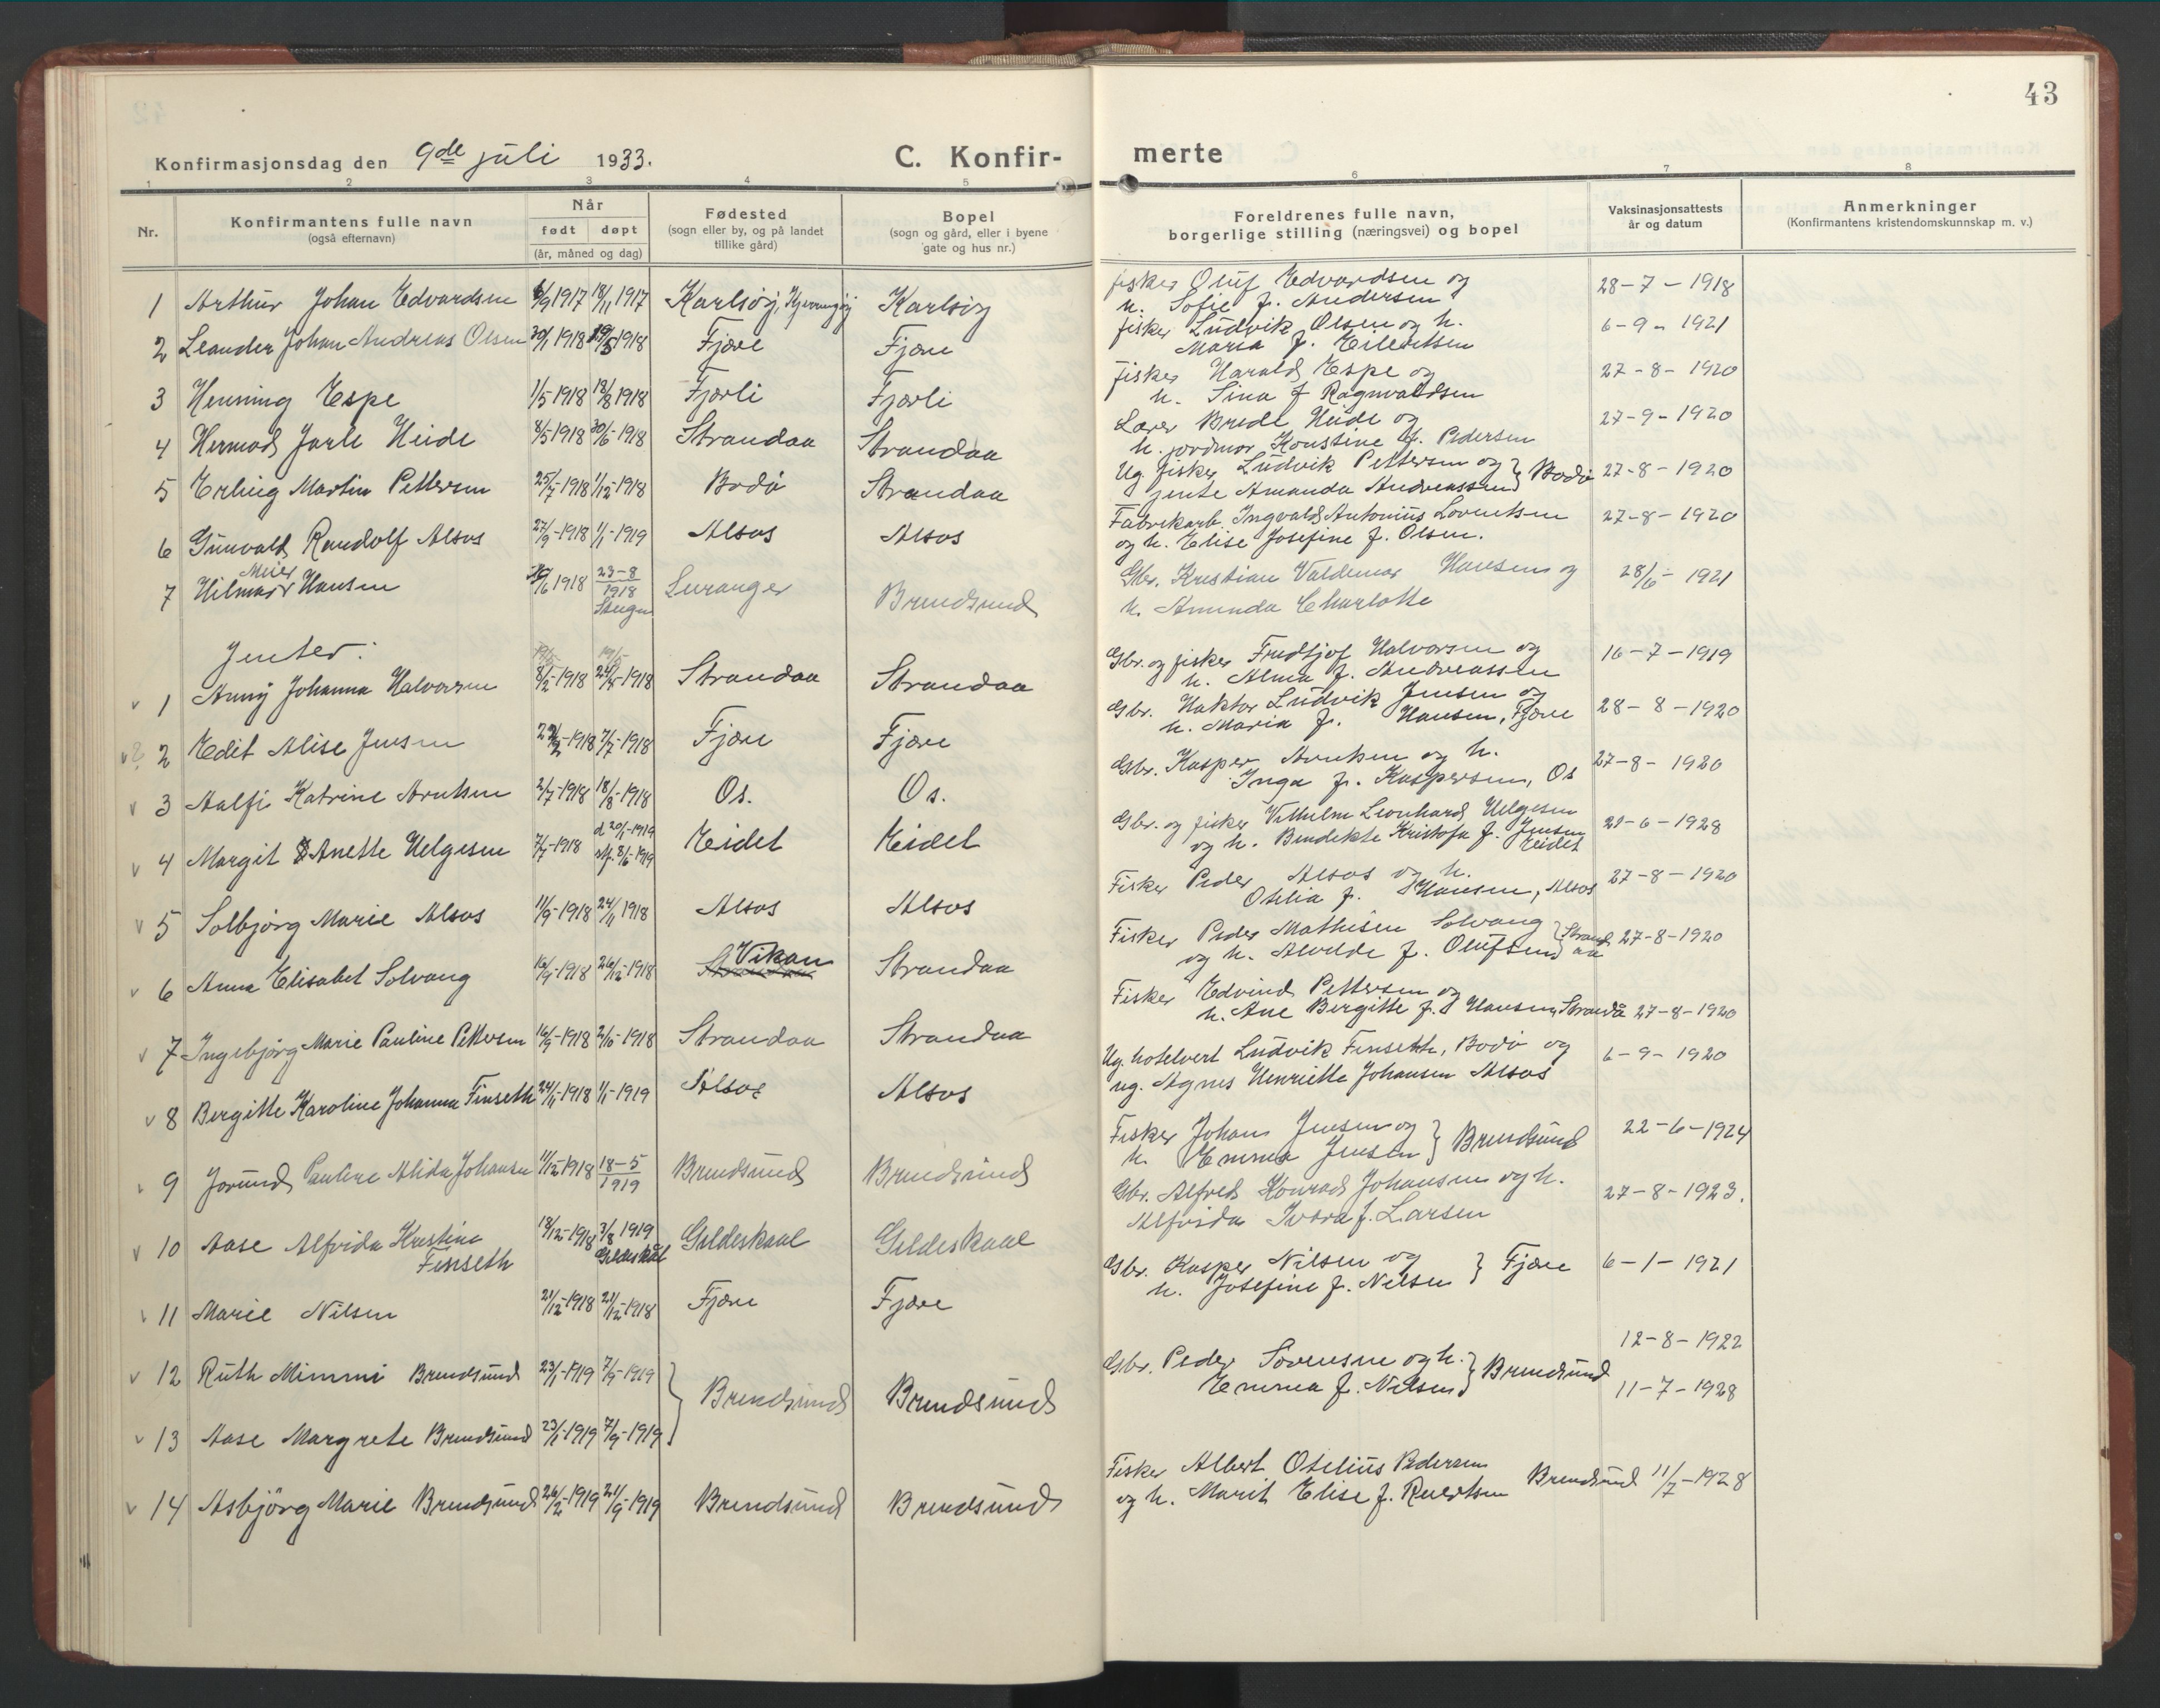 43
Konfirmasjonsdag den 9de juli 1933. C. Konfir- merte
1 2 3 4 5 6 7 8
Nr. Konfirmantens fulle navn (også efternavn) Når født døpt (år, måned og dag) Fødested (sogn eller by, og på landet tillike gård) Bopel (sogn og gård, eller i byene gate og hus nr.) Foreldrenes fulle navn, borgerlige stilling (næringsvei) og bopel Vaksinasjonsattests år og datum Anmerkninger (Konfirmantens kristendomskunnskap m. v.)
1 Arthur Johan Edvardsen 6/9 1917 18/11 1917 Karlsøy, Kjerringøy Karlsøy fisker Oluf Edvardsen og h. Sofie f. Andersen 28-7-1918
2 Leander Johan Andreas Olsen 30/1 1918 19/5 1918 Fjære Fjære fisker Ludvik Olsen og h. Maria f. Eilertsen 6-9-1921
3 Henning Espe 1/5-1918 18/8 1918 Fjærli Fjærli fisker Harald Espe og h. Sina f Ragnvaldsen 27-8-1920
4 Hermod Jarle Heide 8/5-1918 30/6-1918 Strandaa Strandaa Lærer Brede Heide og h. jordmor Konstine f. Pedersen 27-9-1920
5 Erling Martin Pettersen 25/7-1918 1/12-1918 Bodø Strandaa Ug. fisker Ludvik Pettersen og jente Amanda Andreassen } Bodø 27-8-1920
6 Gunvald Randolf Alsos 27/9-1918 1/1-1919 Alsos Alsos Fabrikarb. Ingvald Antonius Lorentsen og h. Elise Josefine f. Olsen. 27-8-1920
7 Hilmar Meier Hansen /6 1918 23-8 1918 Leranger Brendsund Gbr. Kristian Valdemar Hansen og h. Amanda Charlotte 28/6-1921
Jenter:
1 Anny Johanna Halvorsen 8/2-1918 1918 Strandaa Strandaa Gbr. og fisker Fridtjof Halvorsen og h. Alma f. Andreassen 16-7-1919
2 Edit Alise Jensen 1918 7/7-1918 Fjære Fjære Gbr. Haktor Ludvik Jensen og h. Maria f. Hansen, Fjære 28-8-1920
3 Aalfi Katrine Arntsen 2/7-1918 18/8-1918 Os. Os. Gbr. Kasper Arntsen og h. Inga f. Kaspersen, Os 27-8-1920
4 Margit Anette Helgesen 7/7-1918 d 20/1-1919 stf. 8/6-1919 Eidet Eidet Gbr. og fisker Vilhelm Leonhard Helgesen og h. Bendikte Kristofa f. Jensen Eidet 21-6-1928
5 Solbjørg Marie Alsos 11/9-1918 24/11 1918 Alsos Alsos Fisker Peder Alsos og h. Otelia f. Hansen, Alsos 27-8-1920
6 Anna Elisabet Solvang 16/9-1918 26/12-1918 Strandaa Vikan Strandaa Fisker Peder Mathisen Solvang og h. Alvilde f. Olufsen } Strandaa 27-8-1920
7 Ingebjørg Marie Pauline Pettersen 16/9-1918 2/10-1918 Strandaa Strandaa Fisker Edvind Pettersen og h. Ane Bergitte f. Hansen, Strandå 27-8-1920
8 Bergitte Karoline Johanna Finseth 24/11-1918 1/1-1919 Alsos Alsos Ug. hotelvert Ludvik Finseth, Bodø og ug. Agnes Henriette Johansen Alsos 6-9-1920
9 Jorund Pauline Alida Johansen 11/12 1918 18-5 1919 Brendsund Brendsund Fisker Johan Jensen og h. Emma Jensen } Brendsund 22-6-1924
10 Aase Alfrida Kristine Finseth 18/12-1918 3/8 1919 Gildeskål Gildeskaal Gildeskaal Gbr. Alfred Konrad Johansen og h. Alfrida Ivara f. Larsen 27-8-1923.
11 Marie Nilsen 21/12-1918 21/12-1918 Fjære Fjære Gbr. Kasper Nilsen og h. Josefine f. Nilsen } Fjære 6-1-1921
12 Ruth Mimmi Brendsund 23/1-1919 7/9-1919 } Brendsund Brendsund Gbr. Peder Sørensen og h. Emma f. Nilsen } Brendsund 12-8-1922
13 Aase Margrete Brendsund 23/1-1919 7/9-1919 11-7-1928
14 Asbjörg Marie Brendsund 26/2-1919 21/9-1919 Brendsund Brendsund Fisker Albert Otelius Pedersen og h. Marit Elise f. Rueitsen Brendsund 11/7-1928